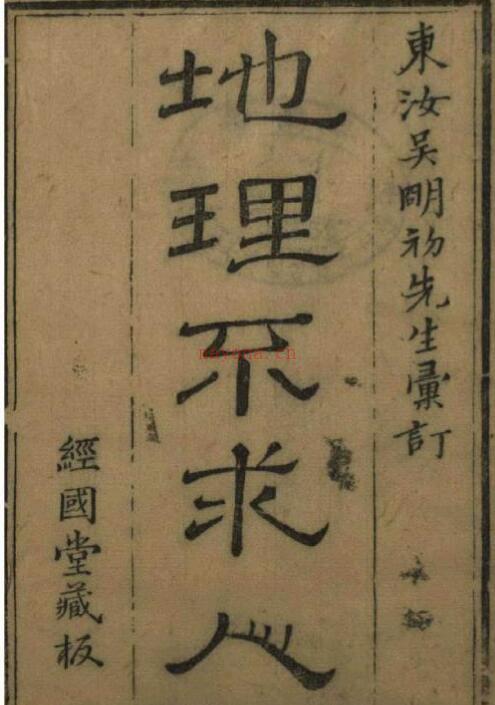 東汝吴明初先生彙訂
地理不求人
經國堂藏板